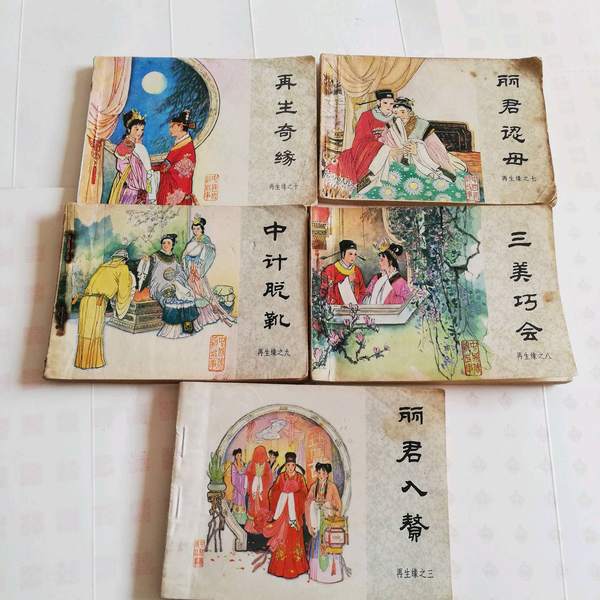 再生奇缘
再生缘之十
丽君认母
再生缘之七
中计脱靴
再生缘之九
三美巧会
再生缘之八
丽君入赘
再生缘之三